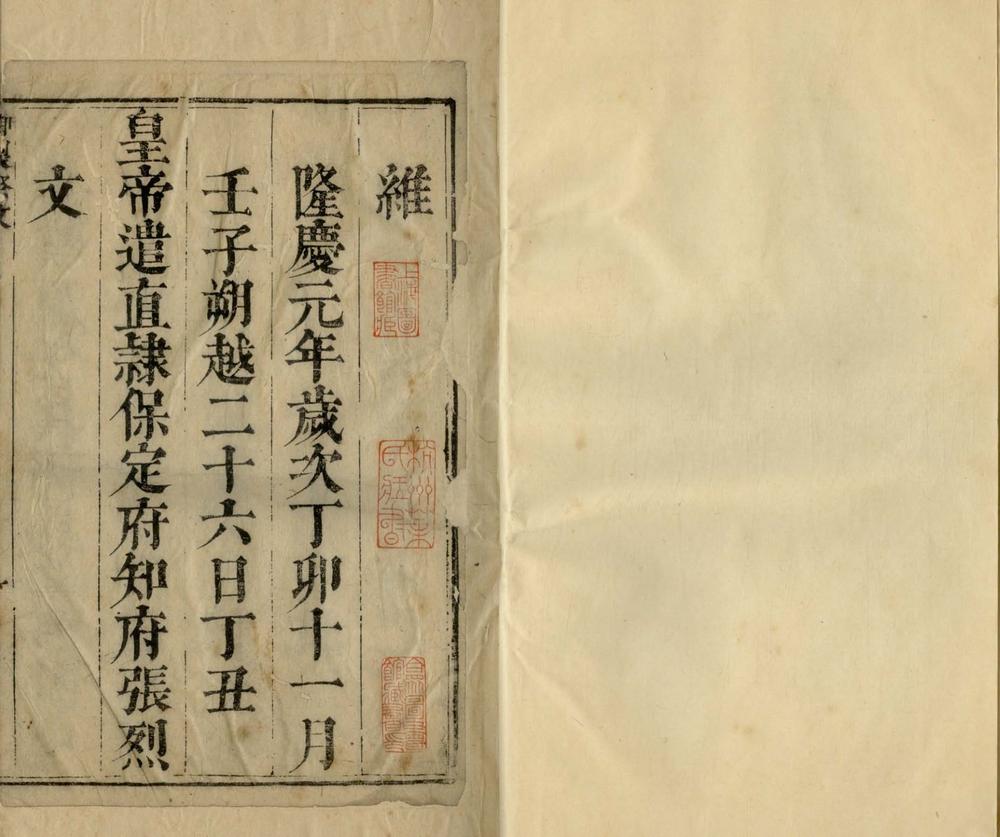 維
隆慶元年歲次丁卯十一月
壬子朔越二十六日丁丑
皇帝遣直隷保定府知府張烈
文
杭州葉氏藏書